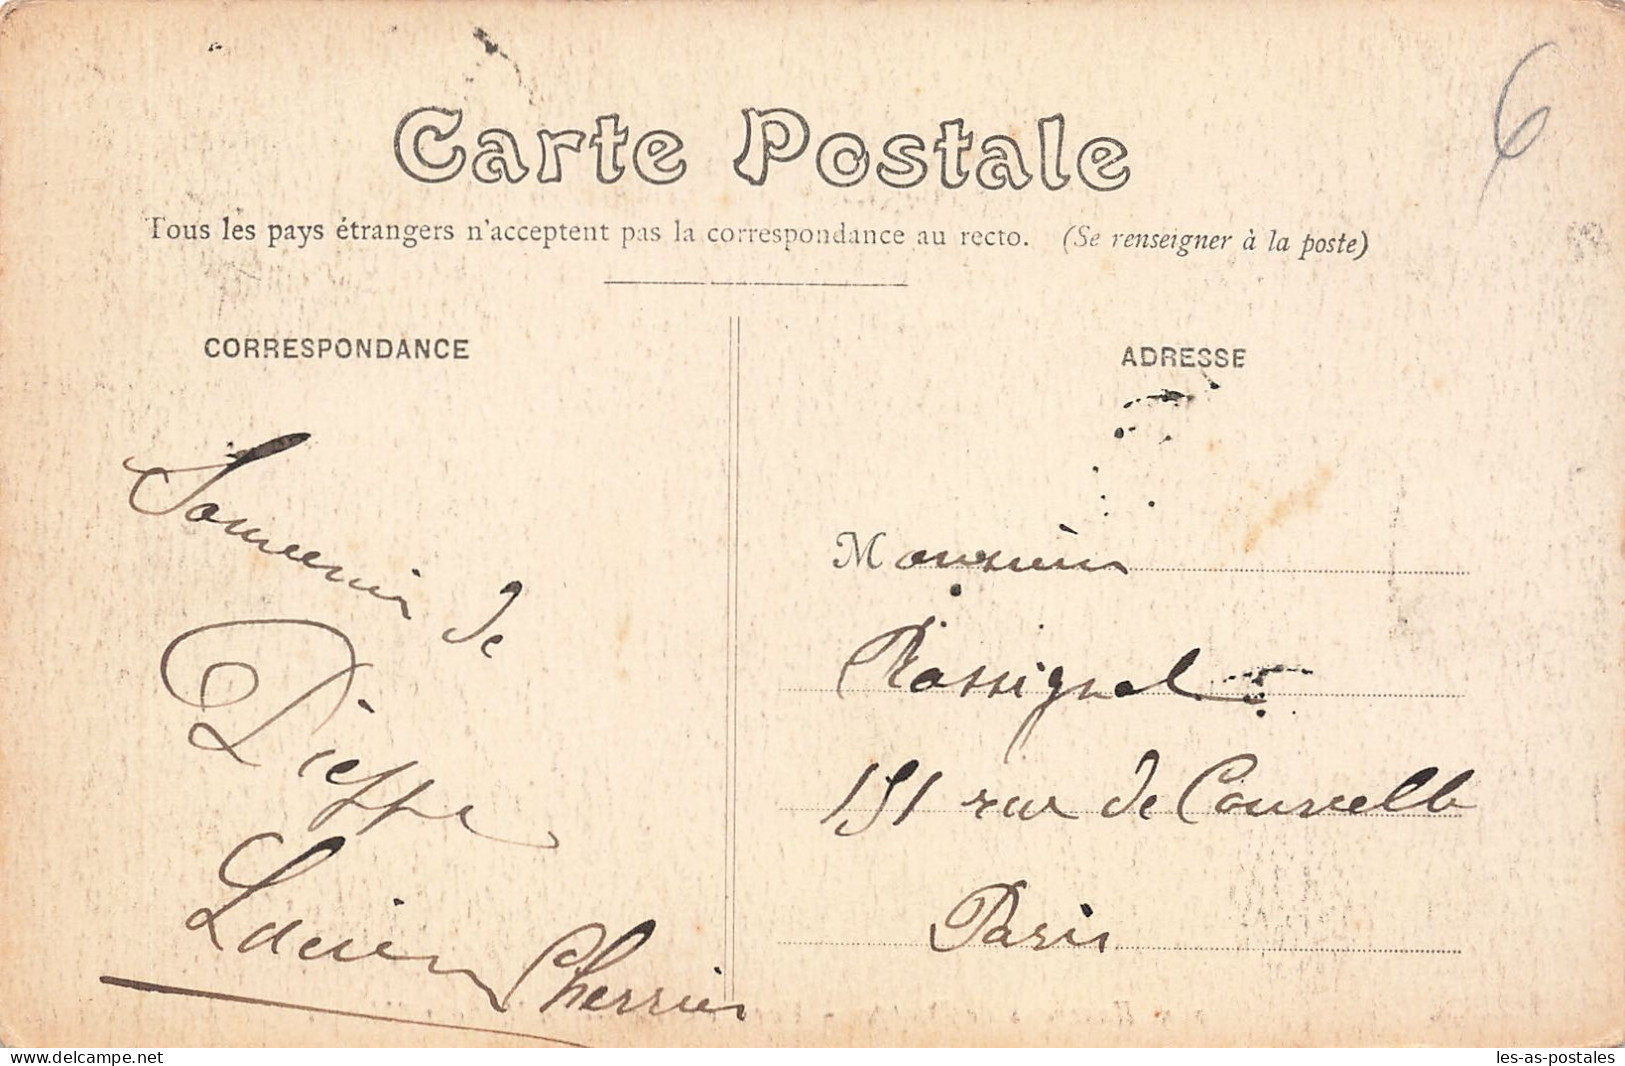 6
Carte Postale
Tous les pays étrangers n'acceptent pas la correspondance au recto. (Se renseigner à la poste)
CORRESPONDANCE
Souvenir de
Dieppe
Lucien Cherrier
ADRESSE
Monsieur
Rossignol
151 rue de Courcelle
Paris
www.delcampe.net
les-as-postales